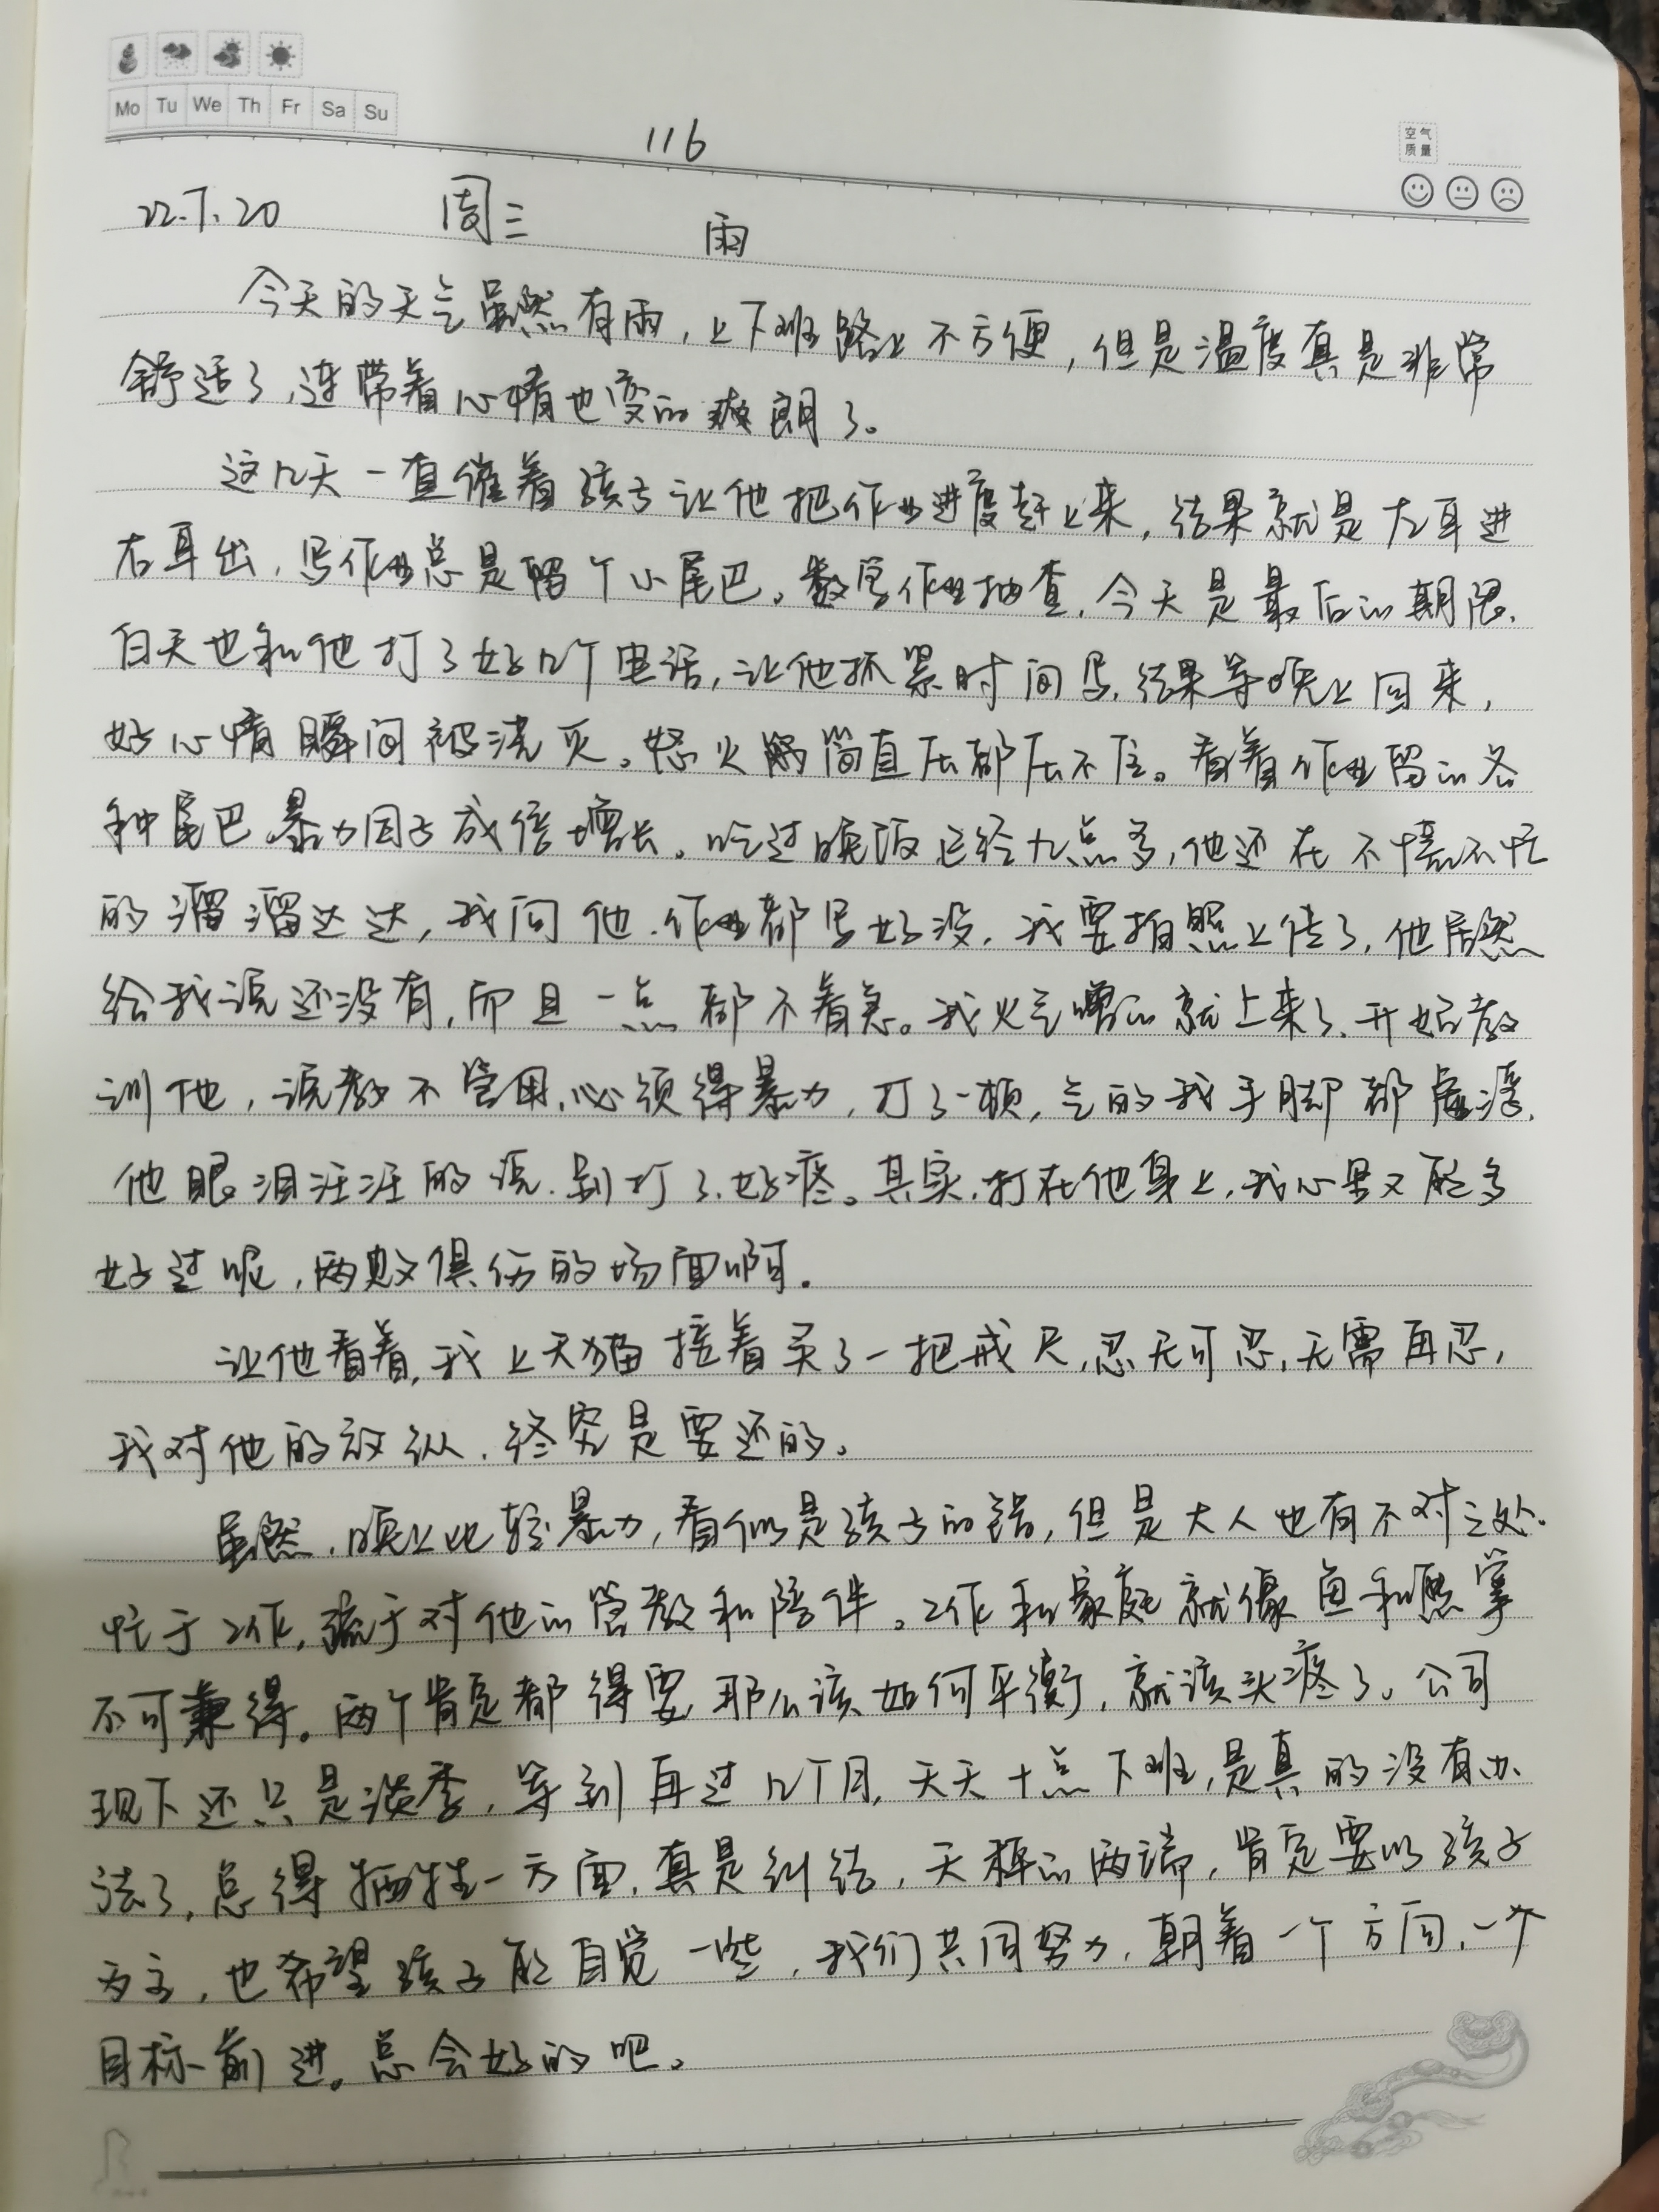 Mo Tu We Th Fr Sa Su
116
空气
质量
22.7.20 周三 雨
今天的天气虽然有雨,上下班路上不方便,但是温度真是非常
舒适了,连带着心情也变的爽朗了。
这几天一直催着孩子让他把作业进度赶上来,结果就是左耳进
右耳出,写作业总是留个小尾巴。数学作业抽查,今天是最后的期限.
白天也和他打了好几个电话,让他抓紧时间写,结果等晚上回来,
好心情瞬间被浇灭。怒火简直压都压不住。看着作业留的各
种尾巴暴力因子成倍增长。吃过晚饭已经九点多,他还在不慌不忙
的溜溜达达,我问他.作业都写好没,我要拍照上传了,他居然
给我说还没有,而且一点都不着急。我火气噌的就上来了.开始教
训他,说教不管用,必须得暴力,打了一顿,气的我手脚都虚浮.
他眼泪汪汪的说.别打了,好疼。其实,打在他身上,我心里又能多
好过呢,两败俱伤的场面啊.
让他看着,我上天猫接着买了一把戒尺,忍无可忍,无需再忍,
我对他的放纵.终究是要还的。
虽然,晚上比较暴力,看似是孩子的错,但是大人也有不对之处.
忙于工作,疏于对他的管教和陪伴。工作和家庭就像鱼和熊掌
不可兼得。两个肯定都得要那么该如何平衡,就该头疼了。公司
现下还只是淡季,等到再过几个月,天天十点下班,是真的没有办
法了,总得牺牲一方面,真是纠结,天秤的两端,肯定要以孩子
为主,也希望孩子能自觉一些,我们共同努力,朝着一个方向、一个
目标前进。总会好的吧。